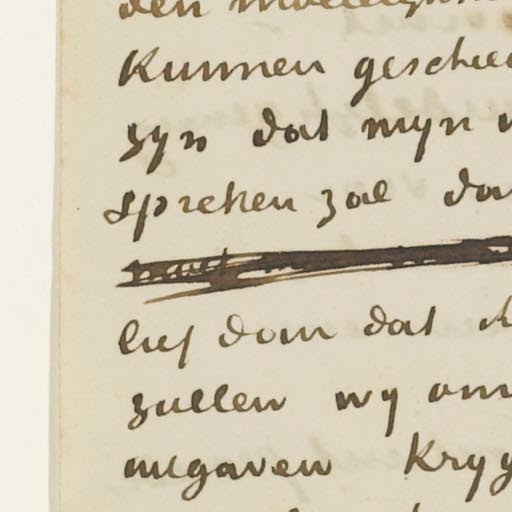 den
kunnen geschied
zyn dat myn
spreken zal da
lief dan dat
zullen wy om
uitgaven kryg